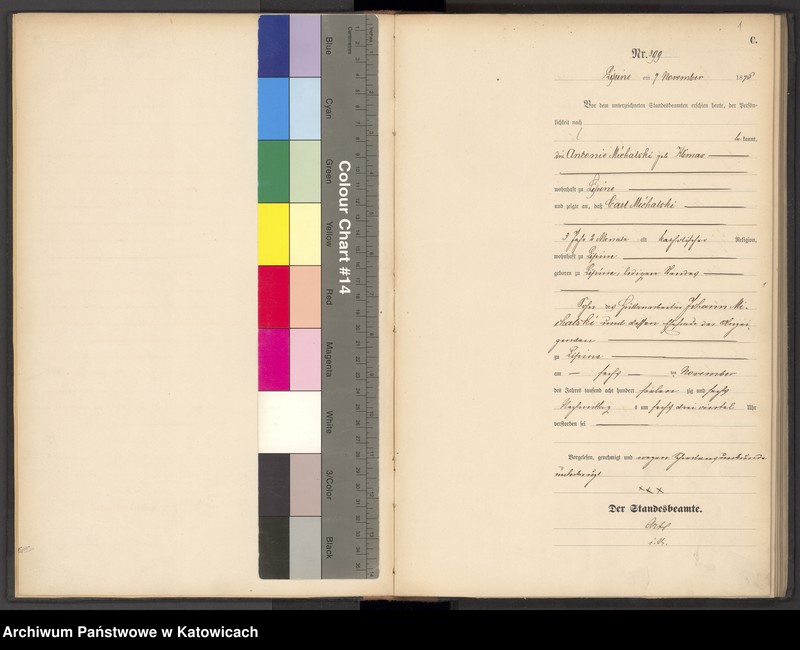 Blue
Cyan
Green
Yellow
Red
Magenta
White
3/Color
Black
Colour Chart #14
Centimetres
Inches
1
C.
Nr. 399
Lipine am 7 November 1876
Vor dem unterzeichneten Standesbeamten erschien heute, der Persön-
lichkeit nach
kannt,
die Antonie Michalski geb. Klimas
wohnhaft zu Lipine
und zeigte an, daß Carl Michalski
3 Jahr 2 Monate alt katholischer Religion,
wohnhaft zu Lipine
geboren zu Lipine, ledigen Standes
Sohn des Hüttenarbeiter Johann Mi-
chalski und dessen Ehefrau der Anzei-
genden
zu Lipine
am sechs ten November
des Jahres tausend acht hundert sieben zig und sechs
Nachmittag s um sechs drei viertel Uhr
verstorben sei
Vorgelesen, genehmigt und wegen
unterkreuzt
xxx
Der Standesbeamte.
Archiwum Państwowe w Katowicach